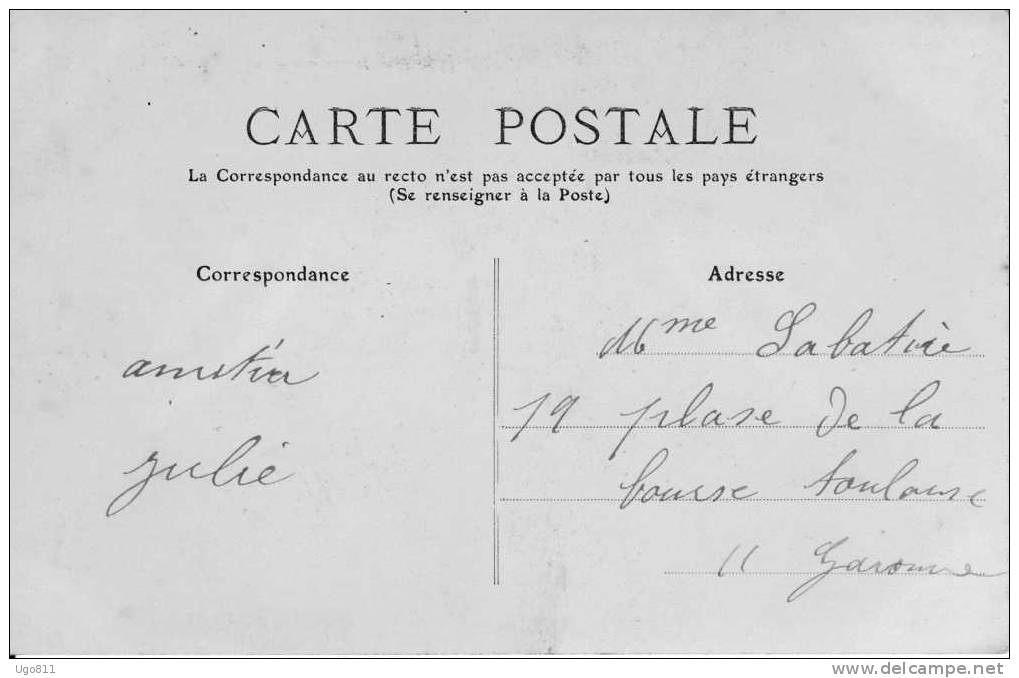 CARTE POSTALE
La Correspondance au recto n'est pas acceptée par tous les pays étrangers
(Se renseigner à la Poste)
Correspondance
Adresse
julie
Mme Sabatié
19 plase de la
bourse toulouse
Garonne
Ugo811
www.delcampe.net